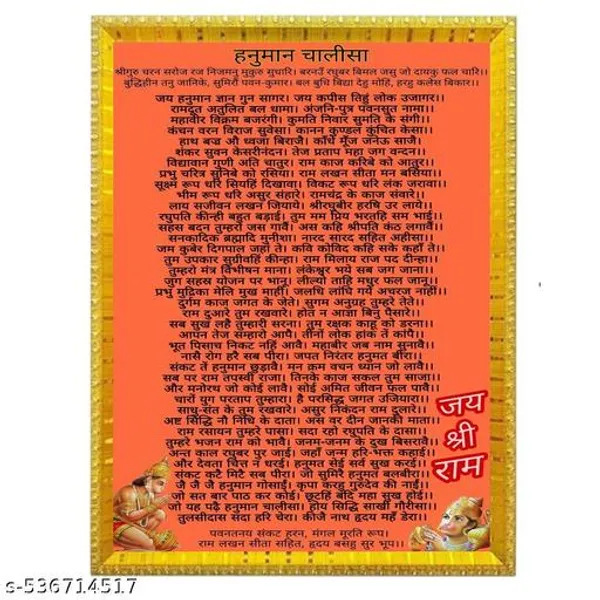 हनुमान चालीसा
श्रीगुरु चरन सरोज रज निजमनु मुकुरु सुधारि। बरनउँ रघुबर बिमल जसु जो दायकु फल चारि।।
बुद्धिहीन तनु जानिके, सुमिरौं पवन-कुमार। बल बुधि बिद्या देहु मोहिं, हरहु कलेस बिकार।।
जय हनुमान ज्ञान गुन सागर। जय कपीस तिहुं लोक उजागर।।
रामदूत अतुलित बल धामा। अंजनि-पुत्र पवनसुत नामा।।
महावीर विक्रम बजरंगी। कुमति निवार सुमति के संगी।।
कंचन वरन विराज सुवेसा। कानन कुण्डल कुंचित केसा।।
हाथ बज्र औ ध्वजा बिराजै। काँधे मूँज जनेऊ साजै।
शंकर सुवन केसरीनंदन। तेज प्रताप महा जग वन्दन।।
विद्यावान गुणी अति चातुर। राम काज करिबे को आतुर।।
प्रभु चरित्र सुनिबे को रसिया। राम लखन सीता मन बसिया।।
सूक्ष्म रूप धरि सियहिं दिखावा। विकट रूप धरि लंक जरावा।।
भीम रूप धरि असुर संहारे। रामचंद्र के काज संवारे।।
लाय सजीवन लखन जियाये। श्रीरघुबीर हरषि उर लाये।।
रघुपति कीन्ही बहुत बड़ाई। तुम मम प्रिय भरतहि सम भाई।।
सहस बदन तुम्हरो जस गावैं। अस कहि श्रीपति कंठ लगावैं।।
सनकादिक ब्रह्मादि मुनीशा। नारद सारद सहित अहीसा।।
जम कुबेर दिगपाल जहां ते। कवि कोविद कहि सके कहाँ ते।।
तुम उपकार सुग्रीवहिं कीन्हा। राम मिलाय राज पद दीन्हा।।
तुम्हरो मंत्र विभीषन माना। लंकेश्वर भये सब जग जाना।।
जुग सहस्र योजन पर भानू। लील्यो ताहि मधुर फल जानू।।
प्रभु मुद्रिका मेलि मुख माहीं। जलधि लांघि गये अचरज नाहीं।।
दुर्गम काज जगत के जेते। सुगम अनुग्रह तुम्हरे तेते।।
राम दुआरे तुम रखवारे। होत न आज्ञा बिनु पैसारे।।
सब सुख लहै तुम्हारी सरना। तुम रक्षक काहू को डरना।।
आपन तेज सम्हारो आपै। तीनों लोक हांक तें कांपै।।
भूत पिसाच निकट नहिं आवै। महाबीर जब नाम सुनावै।।
नासै रोग हरै सब पीरा। जपत निरंतर हनुमत बीरा।।
संकट तें हनुमान छुड़ावै। मन क्रम वचन ध्यान जो लावै।।
सब पर राम तपस्वी राजा। तिनके काज सकल तुम साजा।।
और मनोरथ जो कोई लावै। सोई अमित जीवन फल पावै।।
चारों युग परताप तुम्हारा। है परसिद्ध जगत उजियारा।।
साधु-संत के तुम रखवारे। असुर निकंदन राम दुलारे।।
अष्ट सिद्धि नौ निधि के दाता। अस वर दीन जानकी माता।।
राम रसायन तुम्हरे पासा। सदा रहो रघुपति के दासा।।
तुम्हरे भजन राम को भावै। जनम-जनम के दुख बिसरावै।।
अन्त काल रघुबर पुर जाई। जहाँ जन्म हरि-भक्त कहाई।।
और देवता चित्त न धरई। हनुमत सेई सर्व सुख करई।।
संकट कटै मिटै सब पीरा। जो सुमिरै हनुमत बलबीरा।।
जै जै जै हनुमान गोसाईं। कृपा करहु गुरुदेव की नाईं।।
जो सत बार पाठ कर कोई। छूटहिं बंदि महा सुख होई।।
जो यह पढ़ै हनुमान चालीसा। होय सिद्धि साखी गौरीसा।।
तुलसीदास सदा हरि चेरा। कीजै नाथ हृदय महँ डेरा।।
पवनतनय संकट हरन, मंगल मूरति रूप।
राम लखन सीता सहित, हृदय बसहु सुर भूप।।
जय
श्री
राम
s-536714517